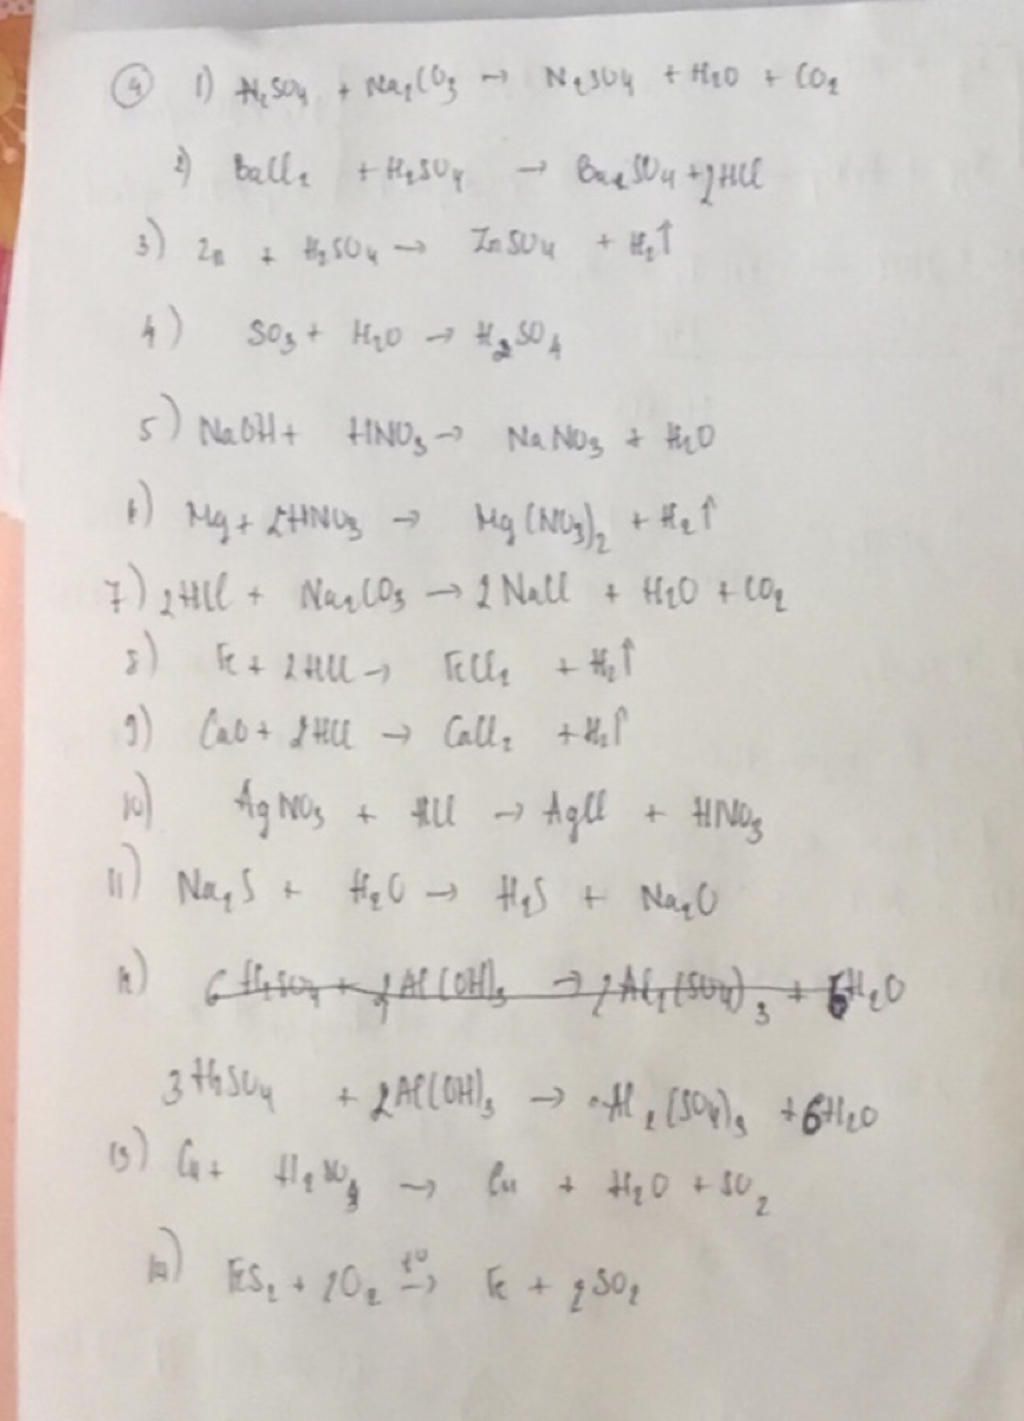 ④ 1) H₂SO₄ + Na₂CO₃ → N₂SO₄ + H₂O + CO₂
2) BaCl₂ + H₂SO₄ → Ba₂SO₄ + 2HCl
3) Zn + H₂SO₄ → ZnSO₄ + H₂↑
4) SO₃ + H₂O → H₂SO₄
5) NaOH + HNO₃ → NaNO₃ + H₂O
6) Mg + 2HNO₃ → Mg(NO₃)₂ + H₂↑
7) 2HCl + Na₂CO₃ → 2NaCl + H₂O + CO₂
8) Fe + 2HCl → FeCl₂ + H₂↑
9) CaO + 2HCl → CaCl₂ + H₂↑
10) AgNO₃ + HCl → AgCl + HNO₃
11) Na₂S + H₂O → H₂S + Na₂O
12) 6H₂SO₄ + 2Al(OH)₃ → 2Al₂(SO₄)₃ + 6H₂O
3H₂SO₄ + 2Al(OH)₃ → Al₂(SO₄)₃ + 6H₂O
13) Cu + H₂SO₄ → Cu + H₂O + SO₂
14) FeS₂ + 2O₂ t° → Fe + 2SO₂